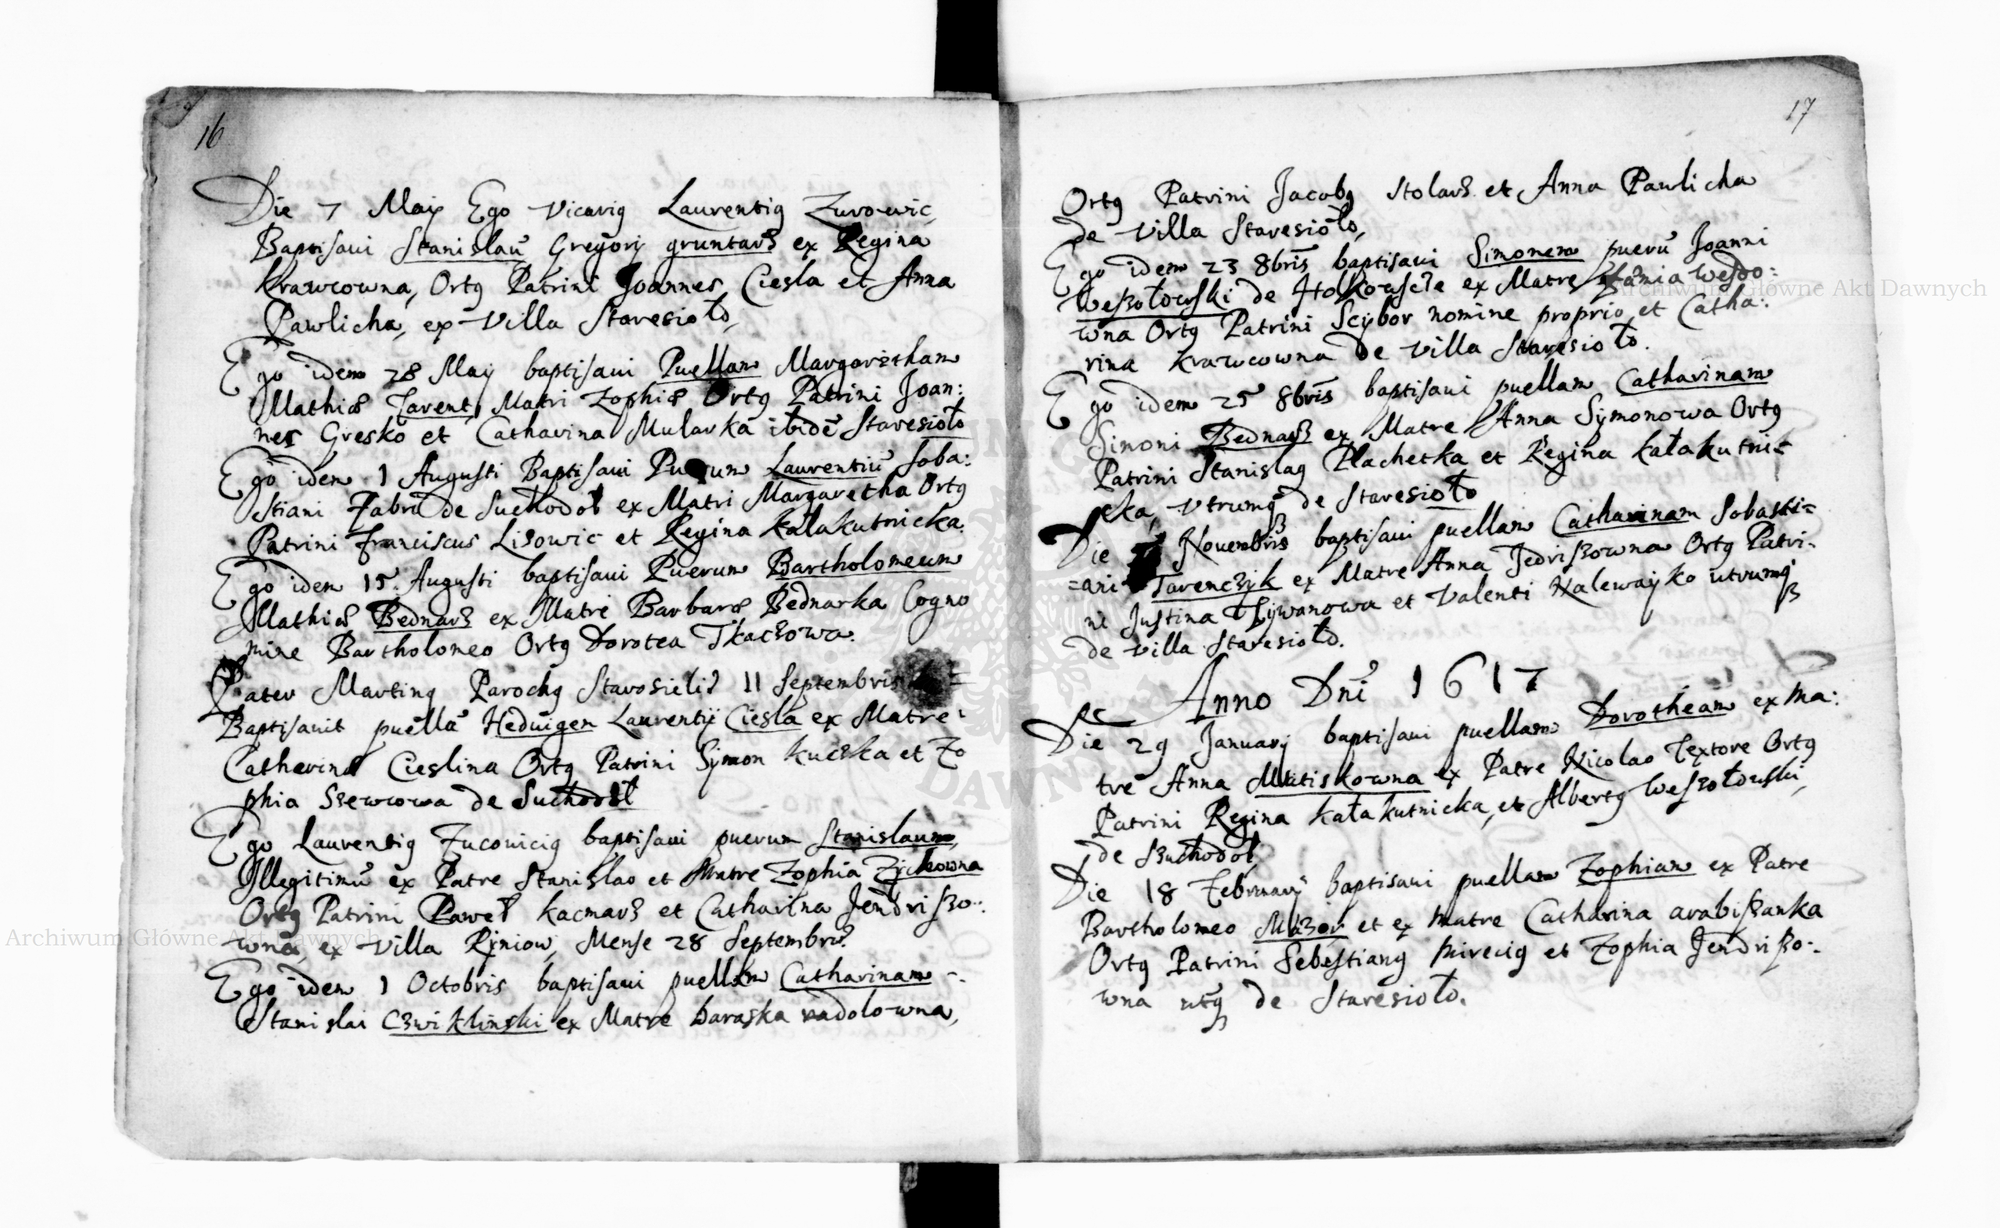 16
Die 7 Maÿ Ego Vicariꝰ Laurentiꝰ Zurowic
Baptisaui Stanislaū Gregorÿ gruntarz ex Regina
Krawcowna, Ortꝰ Patrini Joannes Ciesla et Anna
Pawlicha, ex Villa Staresioło,
Ego idem 28 Maÿ baptisaui Puellam Margaretham
Mathiæ Tarent, Matri Zophiæ Ortꝰ Patrini Joan:
nes Gresko et Catharina Mularka ibidē Staresioło
Ego idem 1 Augusti Baptisaui Puerum Laurentiū Soba:
stiani Fabri de Suchodoł ex Matri Margaretha Ortꝰ
Patrini Franciscus Lisowic et Regina Kałakutnicka
Ego idem 15 Augusti baptisaui Puerum Bartholomeum
Mathiæ Bednarz ex Matre Barbaræ Bednarka Cogno
mine Bartholomeo Ortꝰ Dorotea Tkaczowa.
Pater Martinꝰ Parochꝰ Starosielis 11 Septembris
Baptisauit puellā Heduigen Laurentÿ Ciesla ex Matre
Catherina Cieslina Ortꝰ Patrini Sÿmon Kuczka et Zo
phia Szewcowa de Suchodoł
Ego Laurentiꝰ Zucouiciꝰ baptisaui puerum Stanislaum,
Illegitimū ex Patre Stanislao et Matre Zophia Zÿchowna
Ortꝰ Patrini Paweł Kacmarz et Catharina Jendriszo:
wna, ex Villa Rÿniow, Mense 28 Septembris
Ego idem 1 Octobris baptisaui puellam Catharinam
Stanislai Czwikliński ex Matre baraska radolowna,
17
Ortꝰ Patrini Jacobꝰ Stolarz et Anna Pawlicha
de Villa Staresioło,
Ego idem 23 8bris baptisaui Simonem puerū Joanni
Weszołowski de Hołkowście ex Matre Wesoło:
wna Ortꝰ Patrini Scÿbor nomine proprio, et Catha:
rina Krawcowna de Villa Staresioło.
Ego idem 25 8bris baptisaui puellam Catharinam
Simoni Bednarz ex Matre Anna Sÿmonowa Ortꝰ
Patrini Stanislaꝰ Plachetka et Regina Kałakutni=
cka, Vtrumqꝫ de Staresioło
Die Nouembris baptisaui puellam Catharinam Sobasti=
=ani Tarenczÿk ex Matre Anna Jedriszowna Ortꝰ Patri-
ni Justina Iÿwanowa et Valenti Nalewaÿko utrumqꝫ
de Villa Staresioło.
Anno Dni 1617
Die 29 Januarÿ baptisaui puellam Dorotheam ex Ma:
tre Anna Matiskowna ex Patre Nicolao Textore Ortꝰ
Patrini Regina Kałakutnicka, et Albertꝰ Weszołowski,
de Szuchodoł,
Die 18 Februarÿ baptisaui puellam Zophiam ex Patre
Bartholomeo Mazor et ex Matre Catharina arabiszanka
Ortꝰ Patrini Sebestianꝰ Mireciꝰ et Zophia Jendriszo:
wna utqꝫ de Staresioło.
Archiwum Główne Akt Dawnych
Archiwum Główne Akt Dawnych